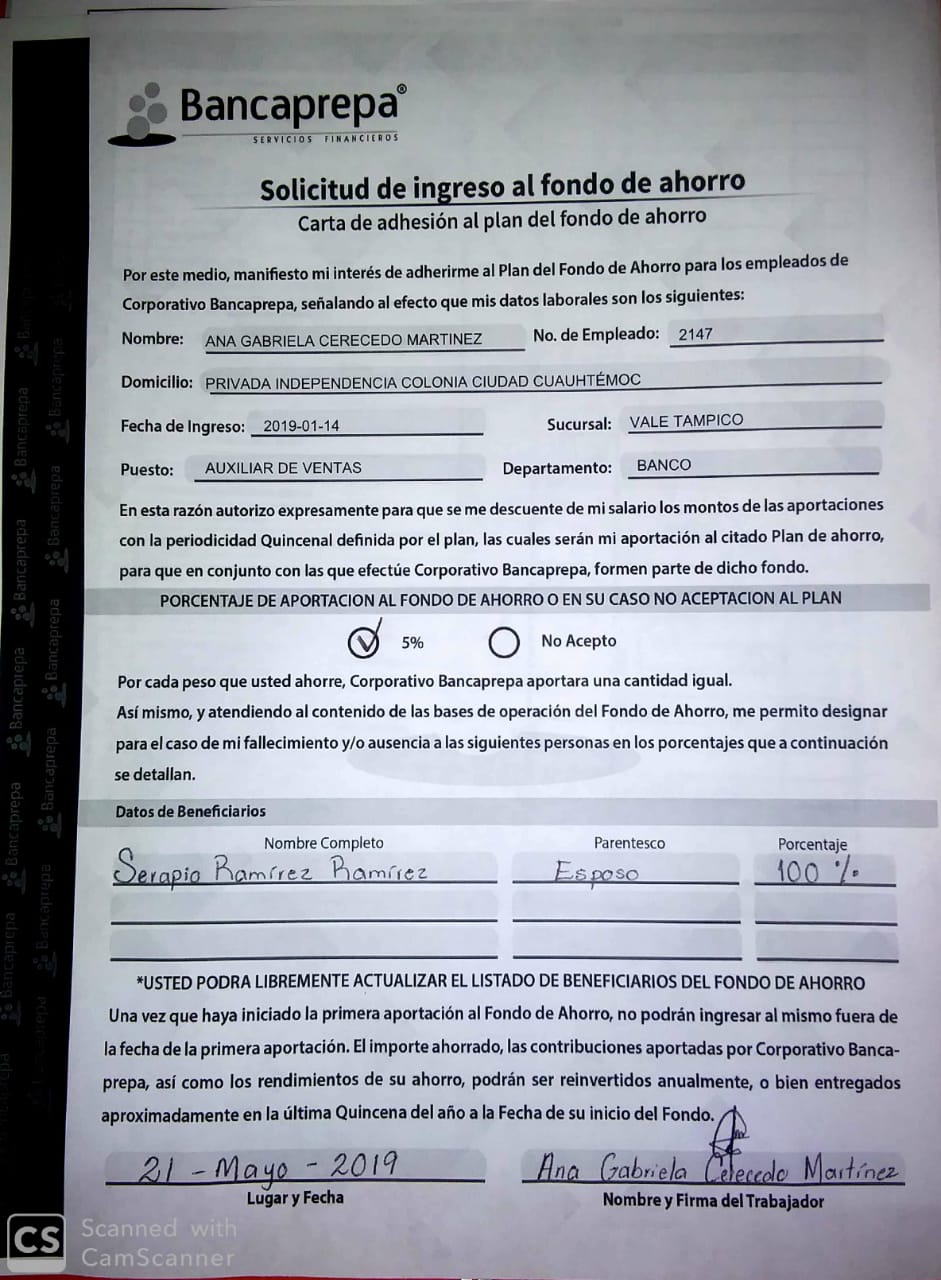 Bancaprepa®
SERVICIOS FINANCIEROS
Solicitud de ingreso al fondo de ahorro
Carta de adhesión al plan del fondo de ahorro
Por este medio, manifiesto mi interés de adherirme al Plan del Fondo de Ahorro para los empleados de
Corporativo Bancaprepa, señalando al efecto que mis datos laborales son los siguientes:
Nombre: ANA GABRIELA CERECEDO MARTINEZ No. de Empleado: 2147
Domicilio: PRIVADA INDEPENDENCIA COLONIA CIUDAD CUAUHTÉMOC
Fecha de Ingreso: 2019-01-14 Sucursal: VALE TAMPICO
Puesto: AUXILIAR DE VENTAS Departamento: BANCO
En esta razón autorizo expresamente para que se me descuente de mi salario los montos de las aportaciones
con la periodicidad Quincenal definida por el plan, las cuales serán mi aportación al citado Plan de ahorro,
para que en conjunto con las que efectúe Corporativo Bancaprepa, formen parte de dicho fondo.
PORCENTAJE DE APORTACION AL FONDO DE AHORRO O EN SU CASO NO ACEPTACION AL PLAN
5% No Acepto
Por cada peso que usted ahorre, Corporativo Bancaprepa aportara una cantidad igual.
Así mismo, y atendiendo al contenido de las bases de operación del Fondo de Ahorro, me permito designar
para el caso de mi fallecimiento y/o ausencia a las siguientes personas en los porcentajes que a continuación
se detallan.
Datos de Beneficiarios
Nombre Completo Parentesco Porcentaje
Serapio Ramírez Ramírez Esposo 100 %
*USTED PODRA LIBREMENTE ACTUALIZAR EL LISTADO DE BENEFICIARIOS DEL FONDO DE AHORRO
Una vez que haya iniciado la primera aportación al Fondo de Ahorro, no podrán ingresar al mismo fuera de
la fecha de la primera aportación. El importe ahorrado, las contribuciones aportadas por Corporativo Banca-
prepa, así como los rendimientos de su ahorro, podrán ser reinvertidos anualmente, o bien entregados
aproximadamente en la última Quincena del año a la Fecha de su inicio del Fondo.
21 - Mayo - 2019 Ana Gabriela Cerecedo Martínez
Lugar y Fecha Nombre y Firma del Trabajador
CS Scanned with
CamScanner